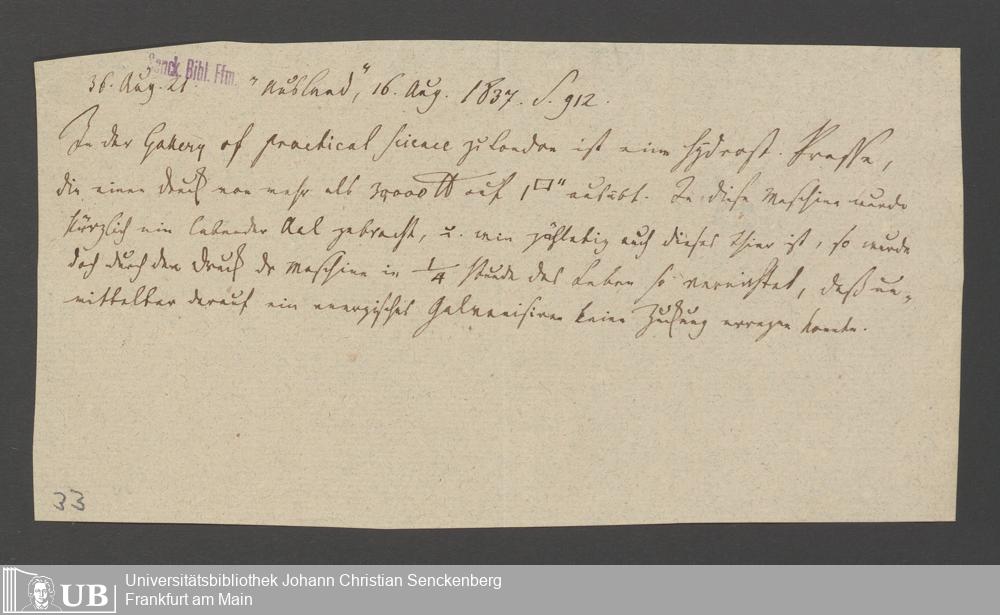 Senck. Bibl. Ffm.
36. Aug. 21. "Ausland", 16. Aug. 1837. S. 912.
In der Gallery of practical science zu London ist eine hydrost. Presse,
die einen Druck von mehr als 30000 ℔ auf 1□" ausübt. In diese Maschine wurde
kürzlich ein lebender Aal gebracht, u. wie zählebig auch dieses Thier ist, so wurde
doch durch den Druck der Maschine in 1/4 Stunde das Leben so vernichtet, daß un-
mittelbar darauf ein energisches Galvanisiren keine Zuckung erregen konnte.
33
UB Universitätsbibliothek Johann Christian Senckenberg
Frankfurt am Main